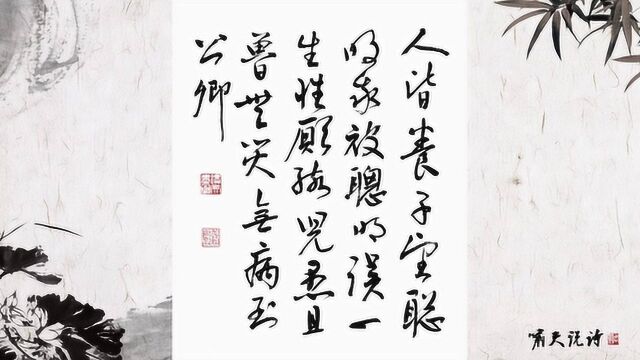 人皆養子望聪
明我被聰明误一
生惟願孩兒愚且
魯無災無病到
公卿
嘯天说诗